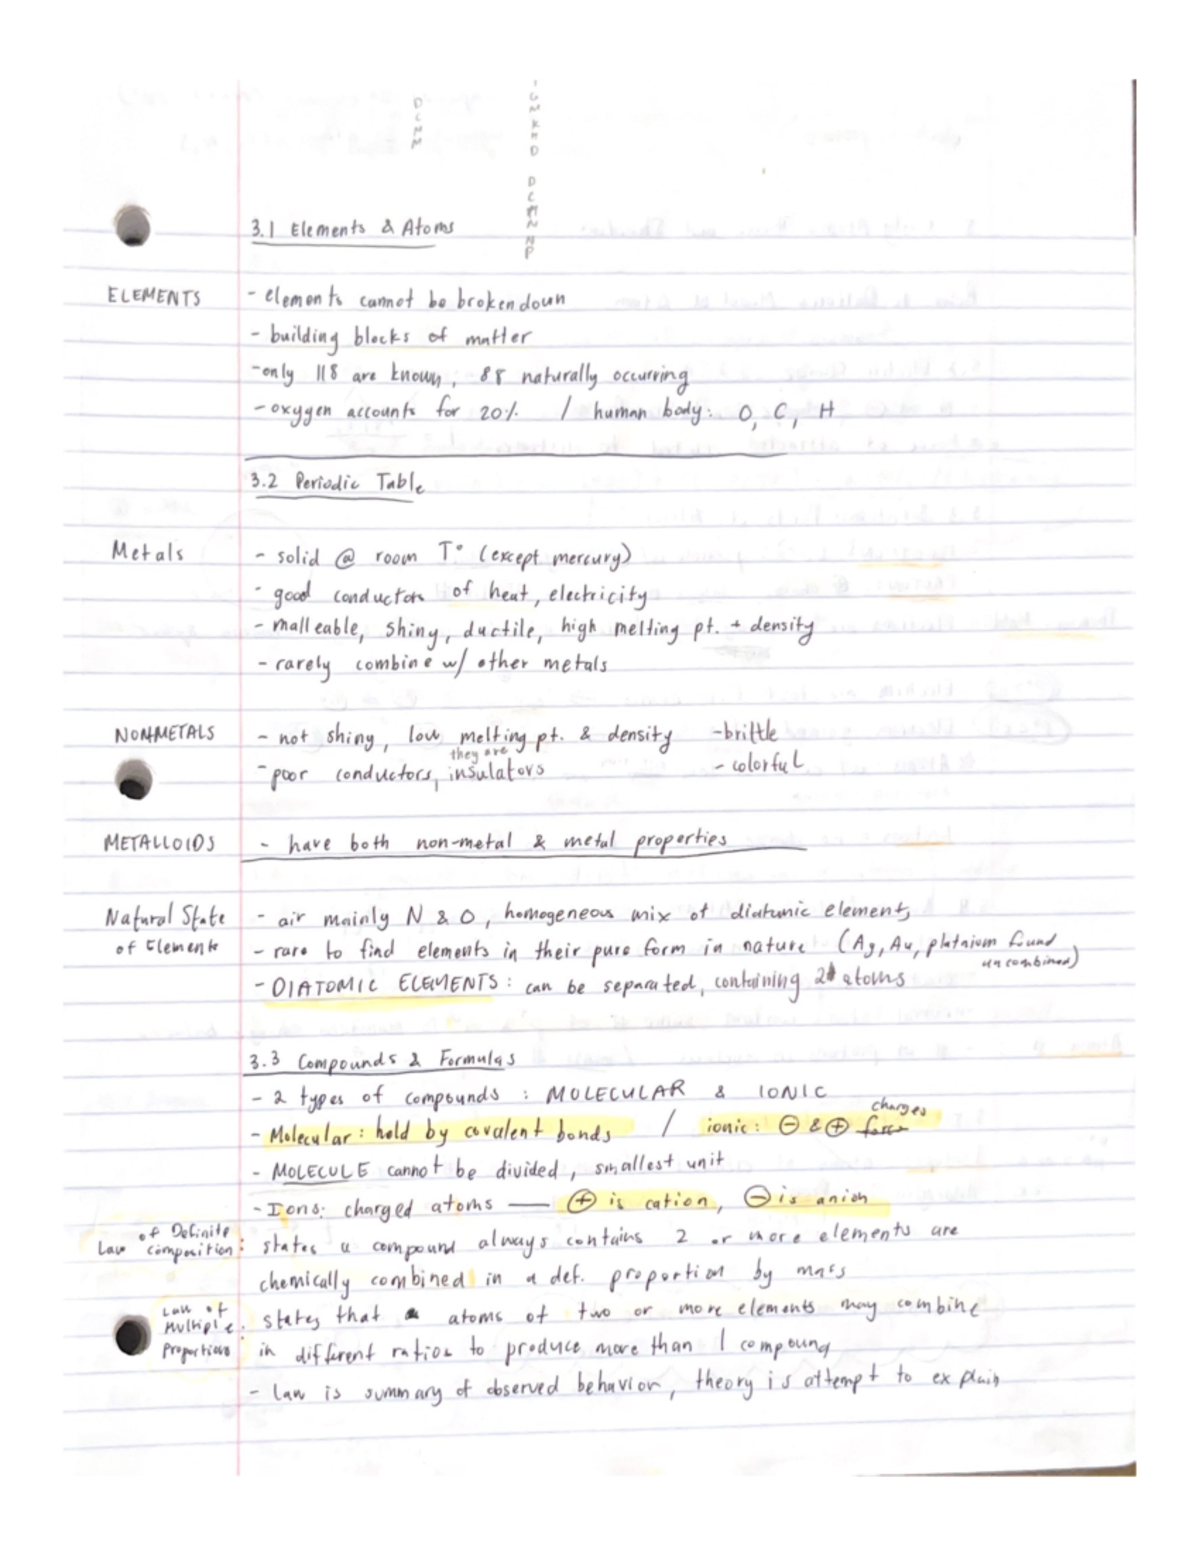 D C M M
G M K H D D C M N N P
3.1 Elements & Atoms
ELEMENTS - elements cannot be broken down
- building blocks of matter
- only 118 are known, 88 naturally occurring
- oxygen accounts for 20% / human body: O, C, H
3.2 Periodic Table
Metals - solid @ room T° (except mercury)
- good conductors of heat, electricity
- malleable, shiny, ductile, high melting pt. + density
- rarely combine w/ other metals
NONMETALS - not shiny, low melting pt. & density - brittle
- poor conductors, they are insulators - colorful
METALLOIDS - have both non-metal & metal properties
Natural State - air mainly N & O, homogeneous mix of diatomic elements
of Elements - rare to find elements in their pure form in nature (Ag, Au, platnium found uncombined)
- DIATOMIC ELEMENTS: can be separated, containing 2 atoms
3.3 Compounds & Formulas
- 2 types of compounds: MOLECULAR & IONIC
- Molecular: held by covalent bonds / ionic: ⊖ & ⊕ charges
- MOLECULE cannot be divided, smallest unit
- Ions: charged atoms — ⊕ is cation, ⊖ is anion
Law of Definite composition: states a compound always contains 2 or more elements are
chemically combined in a def. proportion by mass
Law of Multiple Proportions: states that atoms of two or more elements may combine
in different ratios to produce more than 1 compound
- law is summary of observed behavior, theory is attempt to explain